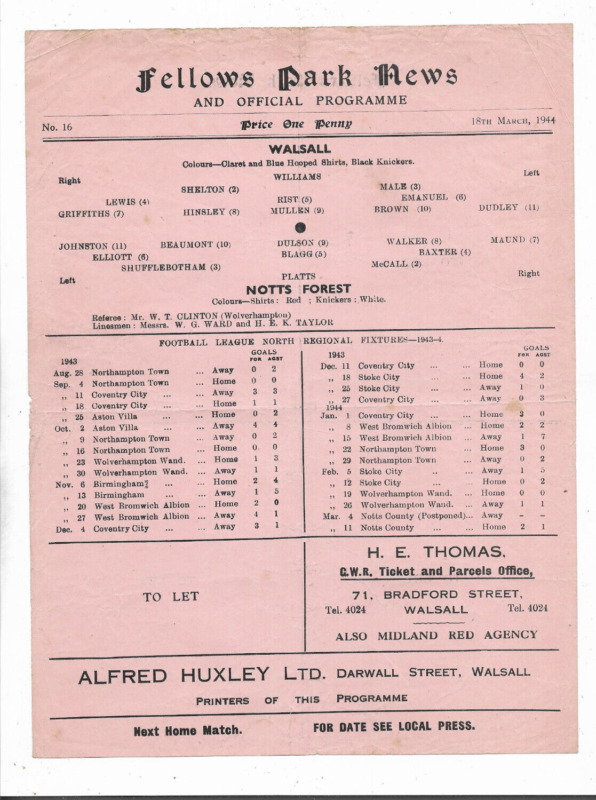 Fellows Park News
AND OFFICIAL PROGRAMME
No. 16 Price One Penny 18TH MARCH, 1944
WALSALL
Colours—Claret and Blue Hooped Shirts, Black Knickers.
Right WILLIAMS Left
SHELTON (2) MALE (3)
LEWIS (4) RIST (5) EMANUEL (6)
GRIFFITHS (7) HINSLEY (8) MULLEN (9) BROWN (10) DUDLEY (11)
JOHNSTON (11) BEAUMONT (10) DULSON (9) WALKER (8) MAUND (7)
ELLIOTT (6) BLAGG (5) BAXTER (4)
SHUFFLEBOTHAM (3) McCALL (2)
Left PLATTS Right
NOTTS FOREST
Colours—Shirts: Red; Knickers: White.
Referee: Mr. W. T. CLINTON (Wolverhampton)
Linesmen: Messrs. W. G. WARD and H. E. K. TAYLOR
FOOTBALL LEAGUE NORTH REGIONAL FIXTURES—1943-4.
GOALS
1943 FOR AGST
Aug. 28 Northampton Town ... Away 0 2
Sep. 4 Northampton Town ... Home 0 0
„ 11 Coventry City ... ... Away 3 3
„ 18 Coventry City ... ... Home 1 1
„ 25 Aston Villa ... ... Home 0 2
Oct. 2 Aston Villa ... ... Away 4 4
„ 9 Northampton Town ... Away 0 2
„ 16 Northampton Town ... Home 0 0
„ 23 Wolverhampton Wand. ... Home 1 3
„ 30 Wolverhampton Wand. ... Away 1 1
Nov. 6 Birmingham ... ... Home 2 4
„ 13 Birmingham ... ... Away 1 5
„ 20 West Bromwich Albion ... Home 2 0
„ 27 West Bromwich Albion ... Away 4 1
Dec. 4 Coventry City ... ... Away 3 1
GOALS
1943 FOR AGST
Dec. 11 Coventry City ... ... Home 0 0
„ 18 Stoke City ... ... Home 4 2
„ 25 Stoke City ... ... Away 1 0
„ 27 Coventry City ... ... Away 0 3
1944
Jan. 1 Coventry City ... ... Home 2 0
„ 8 West Bromwich Albion ... Home 2 2
„ 15 West Bromwich Albion ... Away 1 7
„ 22 Northampton Town ... Home 3 0
„ 29 Northampton Town ... Away 0 2
Feb. 5 Stoke City ... ... Away 1 5
„ 12 Stoke City ... ... Home 0 2
„ 19 Wolverhampton Wand. ... Home 0 0
„ 26 Wolverhampton Wand. ... Away 1 1
Mar. 4 Notts County (Postponed)... Away – –
„ 11 Notts County ... ... Home 2 1
TO LET
H. E. THOMAS,
G.W.R. Ticket and Parcels Office,
71, BRADFORD STREET,
Tel. 4024 WALSALL Tel. 4024
ALSO MIDLAND RED AGENCY
ALFRED HUXLEY LTD. DARWALL STREET, WALSALL
PRINTERS OF THIS PROGRAMME
Next Home Match. FOR DATE SEE LOCAL PRESS.